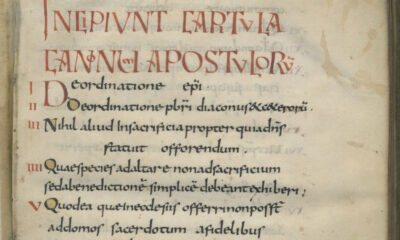 INCIPIUNT CARTULA
CANONUM APOSTULORŪ
I De ordinatione epi
II De ordinatione pbri diaconus & ceterorū.
III Nihil aliud In sacrificia propter quia dns
statuit offorendum.
IIII Quae species ad altare non ad sacrificium
sed a benedictionē simplicē debeant exhiberi;
V Quod ea quae in eodesiis offerri non possт
ad domos sacerdotum a fidelibus